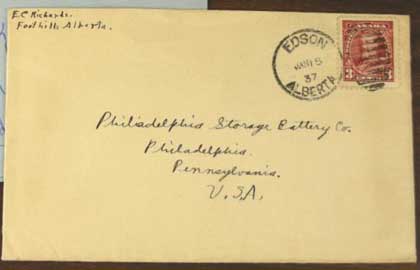 E.C. Richards.
Foothills Alberta.
EDSON
JAN 15
37
ALBERTA
CANADA
3
Philadelphia Storage Battery Co.
Philadelphia.
Pennsylvania.
U.S.A.